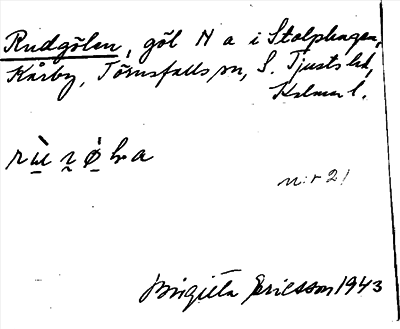 Rudgölen, göl N a i Stolphagen,
Kårby, Törnsfalls sn, S. Tjusts hd,
Kalmar l.
nr 21
Birgitta Ericsson 1943